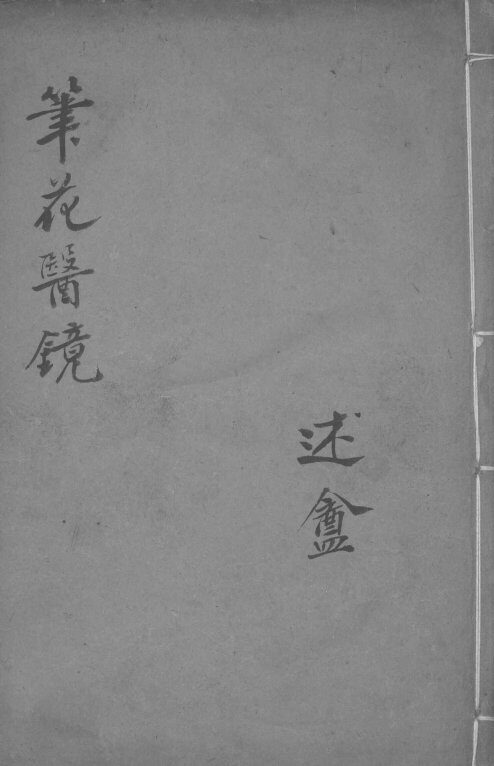 筆花醫鏡
述盦